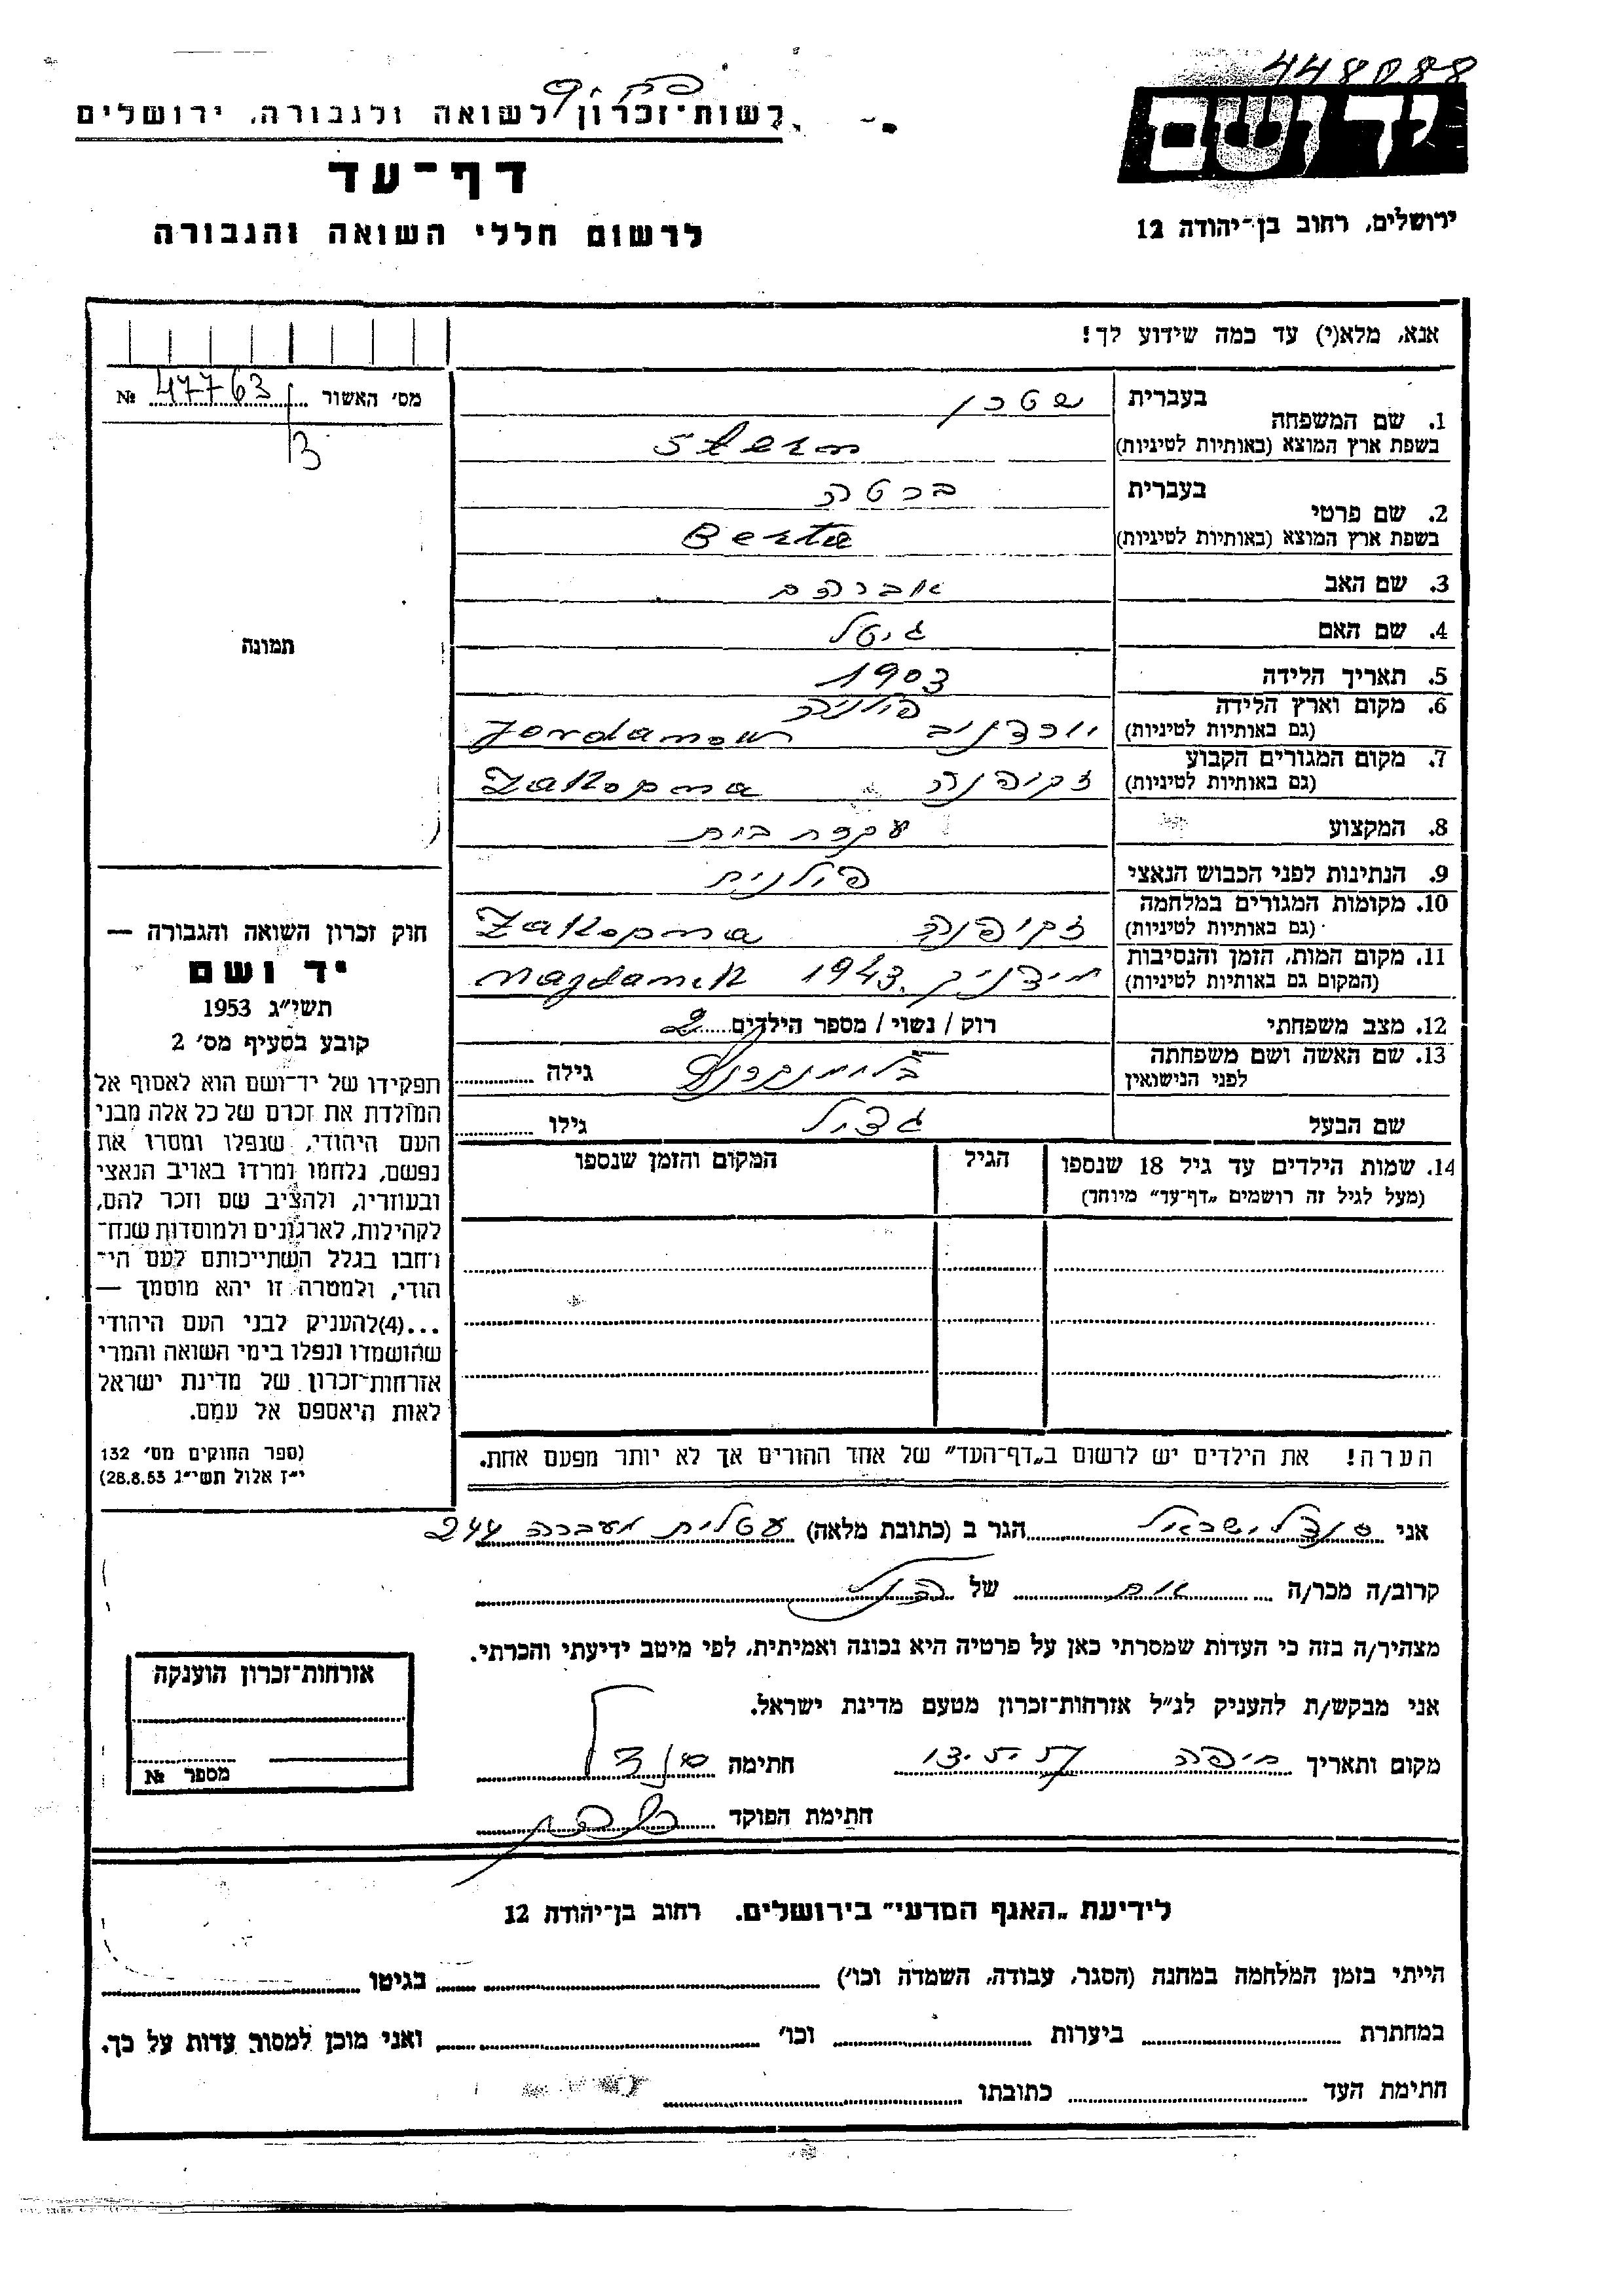 448088
יד ושם
רשות־זכרון לשואה ולגבורה, ירושלים
דף־עד
לרשום חללי השואה והגבורה
ירושלים, רחוב בן־יהודה 12
אנא, מלא(י) עד כמה שידוע לך!
מס׳ האשור № 47763
3
בעברית שטרן
1. שם המשפחה
בשפת ארץ המוצא (באותיות לטיניות) Stern
בעברית ברטה
2. שם פרטי
בשפת ארץ המוצא (באותיות לטיניות) Berta
3. שם האב אברהם
4. שם האם גיטל
5. תאריך הלידה 1903
6. מקום וארץ הלידה פולניה
(גם באותיות לטיניות) יורדנוב Jordanow
7. מקום המגורים הקבוע
(גם באותיות לטיניות) זקופנה Zakopna
8. המקצוע עקרת בית
9. הנתינות לפני הכבוש הנאצי פולנית
10. מקומות המגורים במלחמה
(גם באותיות לטיניות) זקופנה Zakopna
11. מקום המות, הזמן והנסיבות
(המקום גם באותיות לטיניות) מידניק 1943 Magdanek
12. מצב משפחתי רוק / נשוי / מספר הילדים 2
13. שם האשה ושם משפחתה
לפני הנישואין גילה
שם הבעל גילו
14. שמות הילדים עד גיל 18 שנספו הגיל המקום והזמן שנספו
(מעל לגיל זה רושמים „דף־עד” מיוחד)
הערה! את הילדים יש לרשום ב„דף־העד” של אחד ההורים אך לא יותר מפעם אחת.
תמונה
חוק זכרון השואה והגבורה —
יד ושם
תשי״ג 1953
קובע בסעיף מס׳ 2
תפקידו של יד־ושם הוא לאסוף אל
המולדת את זכרם של כל אלה מבני
העם היהודי, שנפלו ומסרו את
נפשם, נלחמו ומרדו באויב הנאצי
ובעוזריו, ולהציב שם וזכר להם,
לקהילות, לארגונים ולמוסדות שנח־
רחבו בגלל השתייכותם לעם הי־
הודי, ולמטרה זו יהא מוסמך —
...(4)להעניק לבני העם היהודי
שהושמדו ונפלו בימי השואה והמרי
אזרחות־זכרון של מדינת ישראל
לאות היאספם אל עמם.
(ספר החוקים מס׳ 132
י״ז אלול תשי״ג 28.8.53)
אני זנדל ישראל הגר ב (כתובת מלאה) עטלית מעברה 244
קרוב/ה מכר/ה של
מצהיר/ה בזה כי העדות שמסרתי כאן על פרטיה היא נכונה ואמיתית, לפי מיטב ידיעתי והכרתי.
אני מבקש/ת להעניק לנ״ל אזרחות־זכרון מטעם מדינת ישראל.
מקום ותאריך חיפה חתימה
חתימת הפוקד
אזרחות־זכרון הוענקה
מספר №
לידיעת „האגף המדעי” בירושלים. רחוב בן־יהודה 12
הייתי בזמן המלחמה במחנה (הסגר, עבודה, השמדה וכו׳) בגיטו
במחתרת ביערות וכו׳ ואני מוכן למסור עדות על כך.
חתימת העד כתובתו